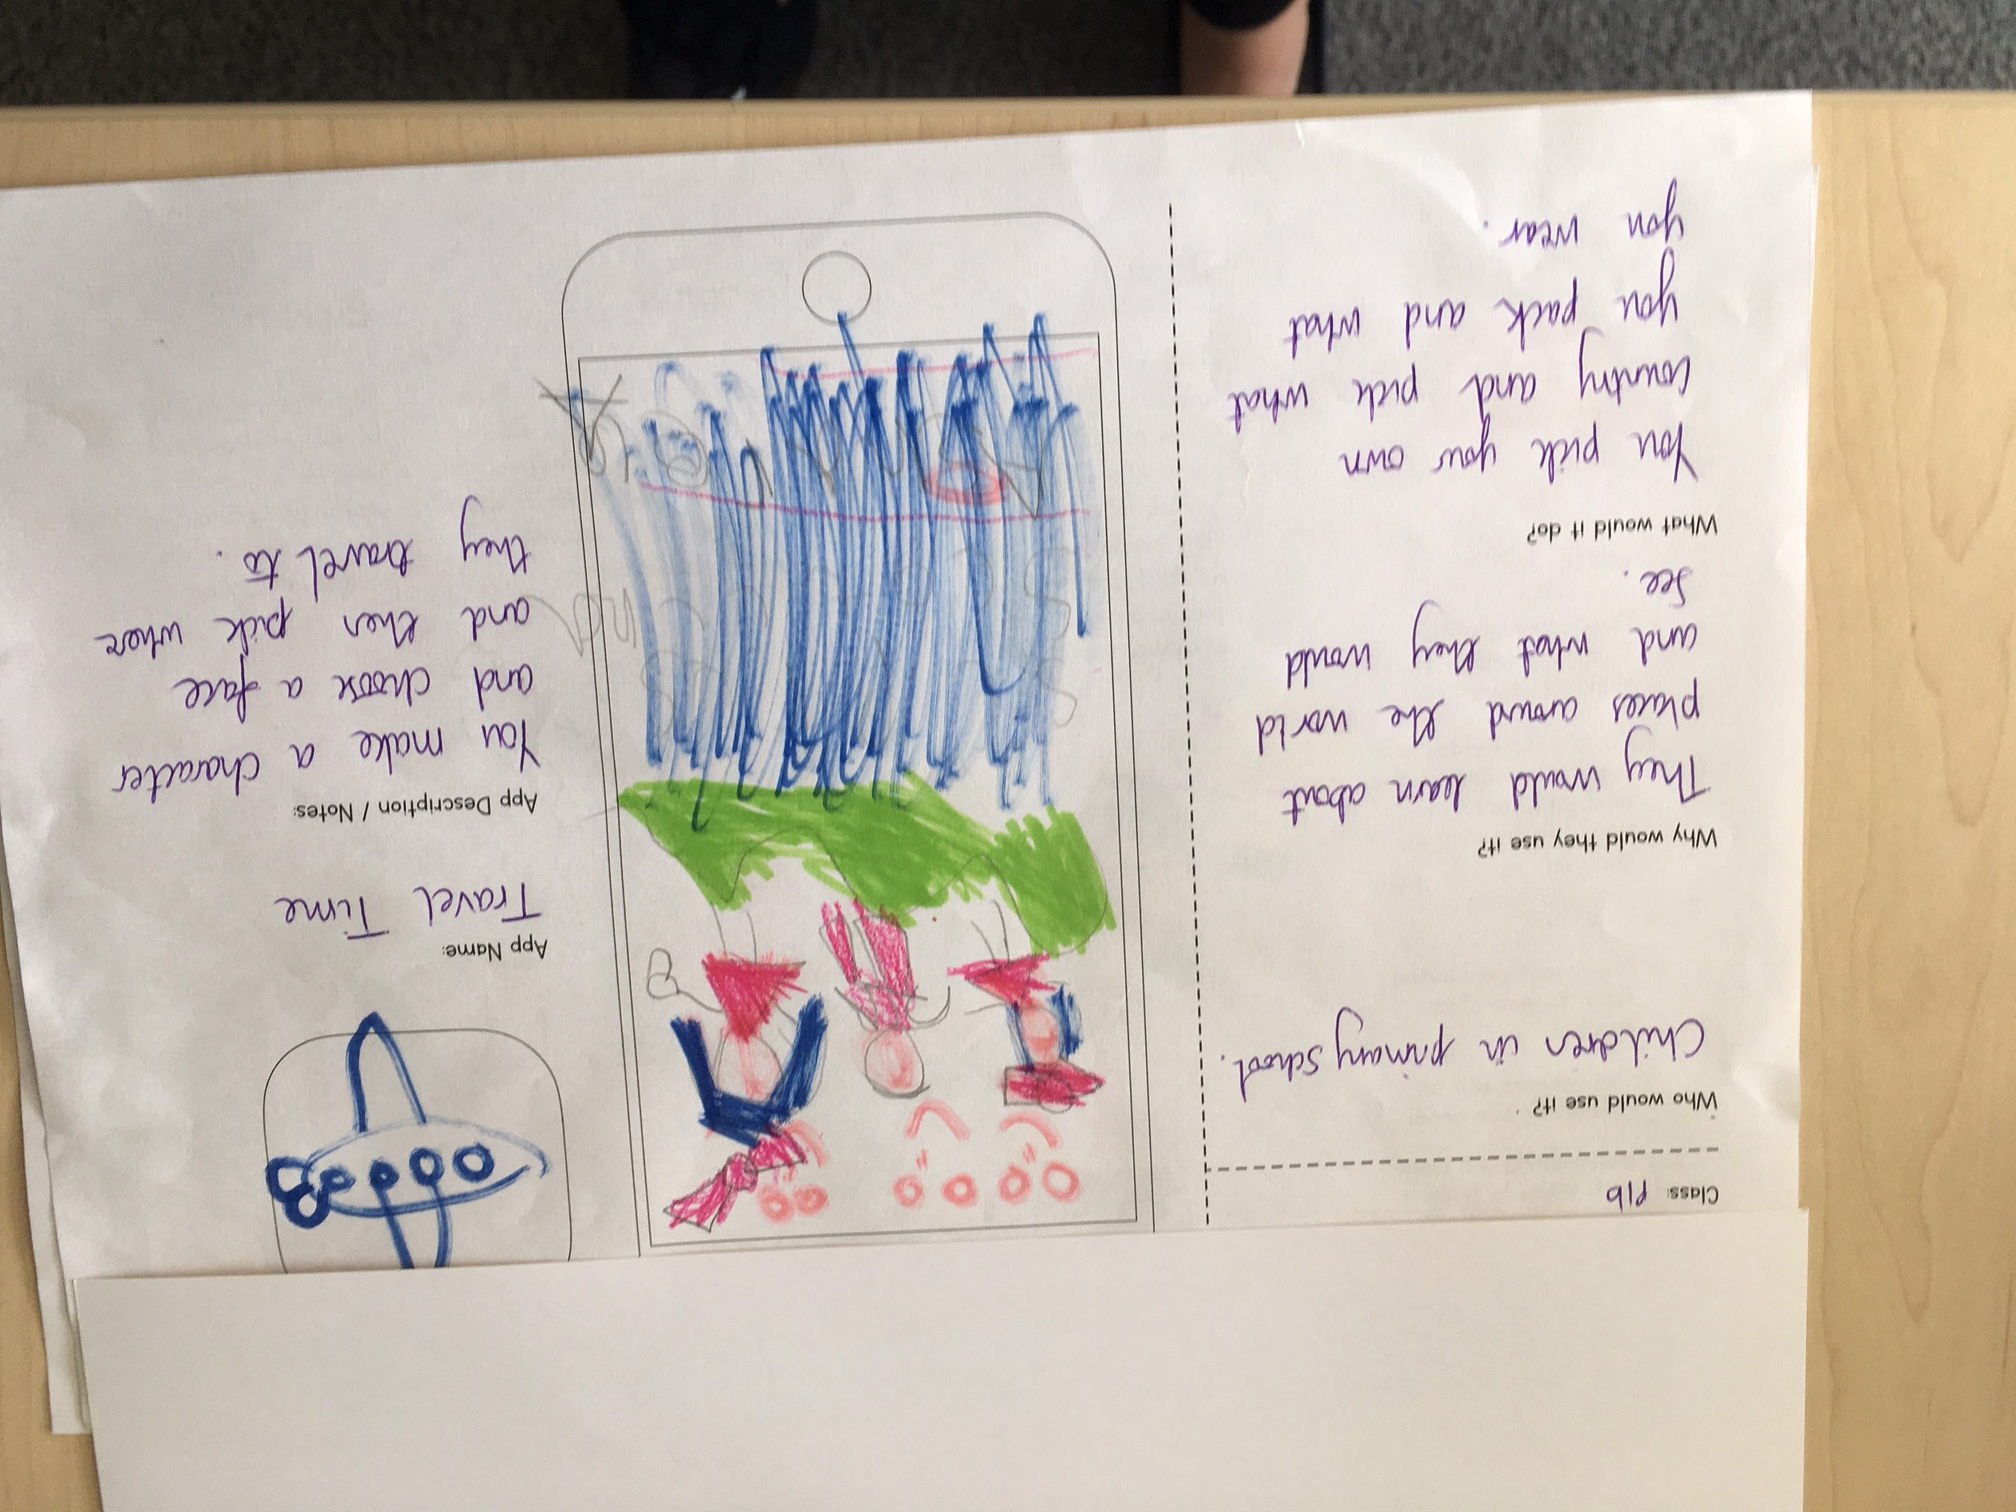 Class: P1b
Who would use it?
Children in primary school.
Why would they use it?
They would learn about
places around the world
and what they would
see.
What would it do?
You pick your own
country and pick what
you pack and what
you wear.
App Name:
Travel Time
App Description / Notes:
You make a character
and choose a face
and then pick where
they travel to.